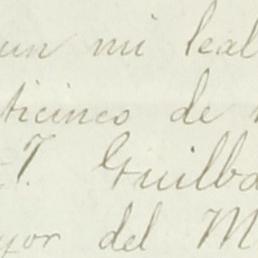 un mi leal
ticinco de
J. Guilb
yor del M